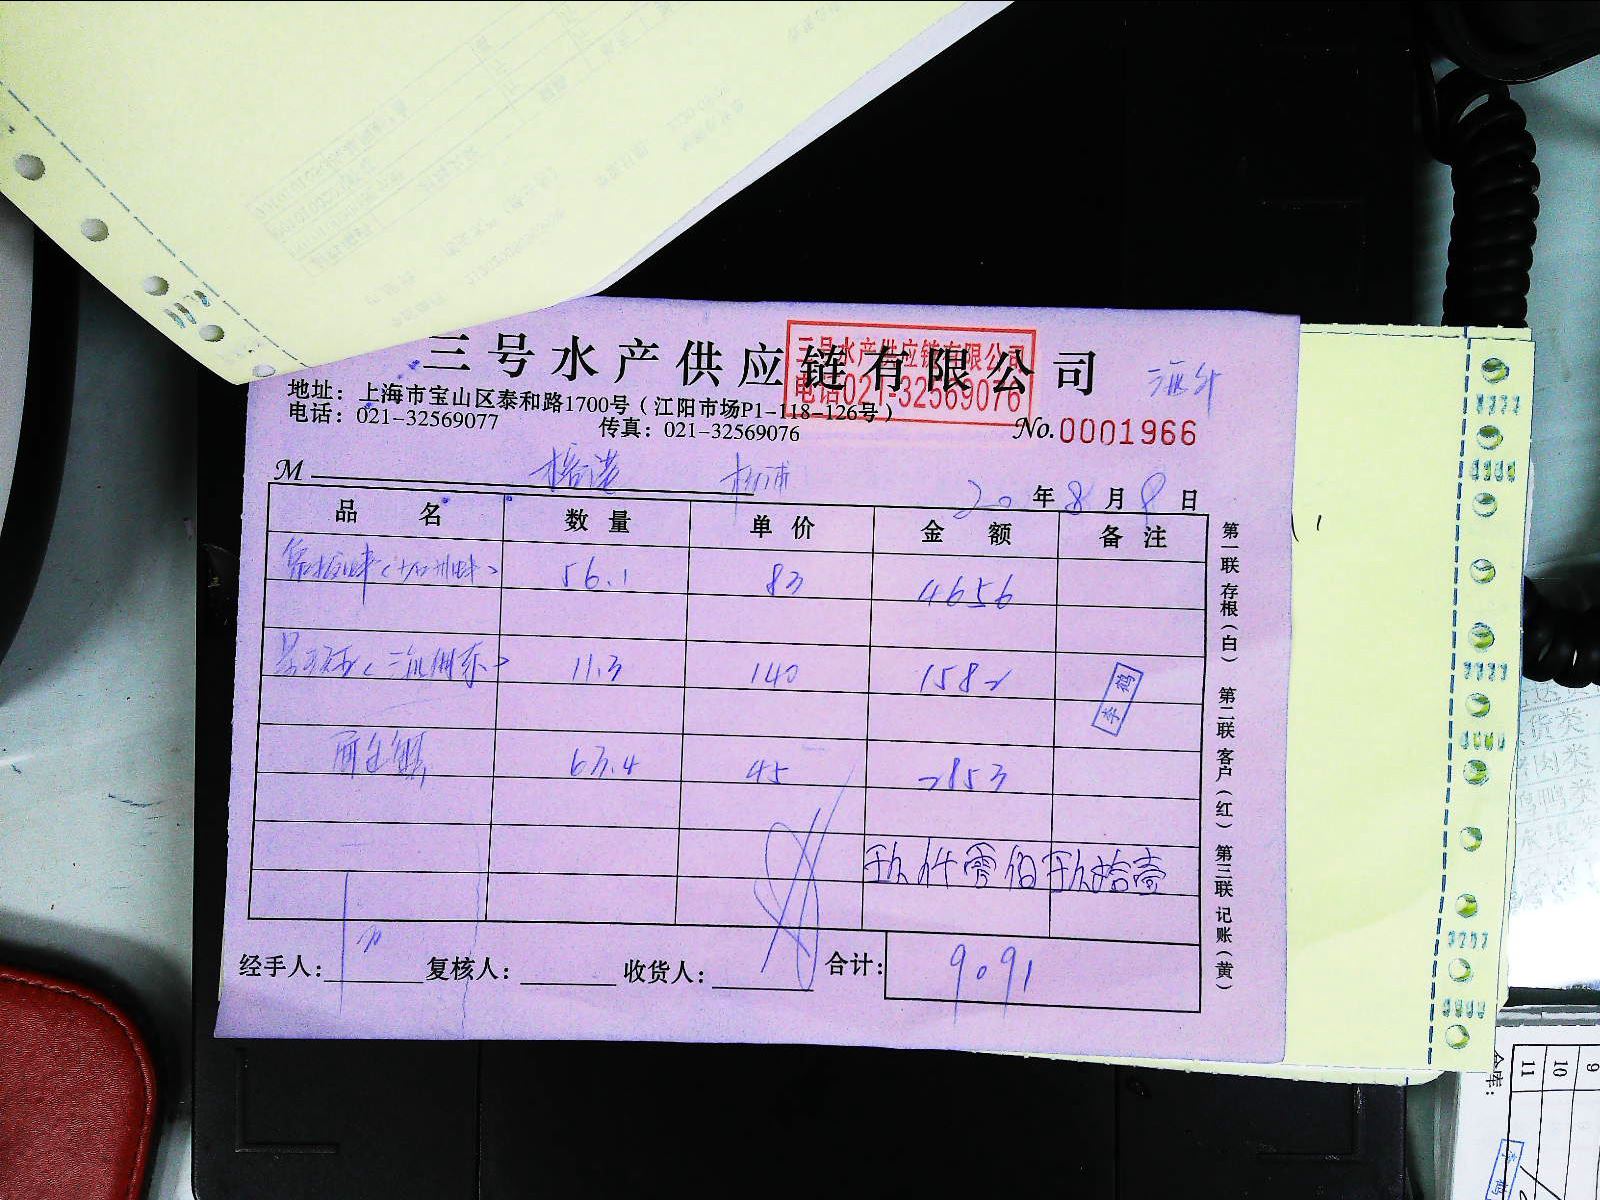 三号水产供应链有限公司
三号水产供应链有限公司
电话021-32569076
地址：上海市宝山区泰和路1700号（江阳市场P1-118-126号）
电话：021-32569077 传真：021-32569076
No.0001966
M 杨浦
20年8月9日
品名 数量 单价 金额 备注
56.1 83 4656
11.3 140 1582
李鹤
63.4 45 2853
玖仟零佰玖拾壹
经手人： 复核人： 收货人： 合计： 9091
第一联 存根（白） 第二联 客户（红） 第三联 记账（黄）
货类
肉类
仓库：
11
10
9